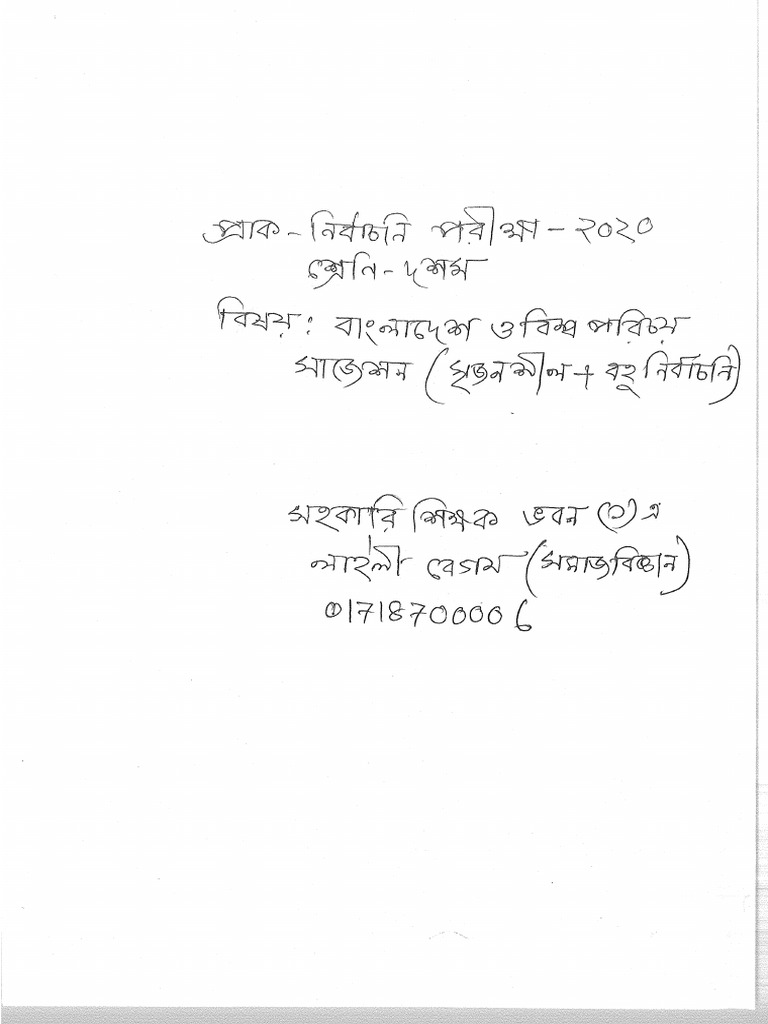 প্রাক-নির্বাচনি পরীক্ষা-২০২০
শ্রেনি-দশম
বিষয়: বাংলাদেশ ও বিশ্ব পরিচয়
সাজেশন (সৃজনশীল + বহু নির্বাচনি)
সহকারি শিক্ষক ভবন (৩) এ
লাইলী বেগম (সমাজবিজ্ঞান)
01718700006